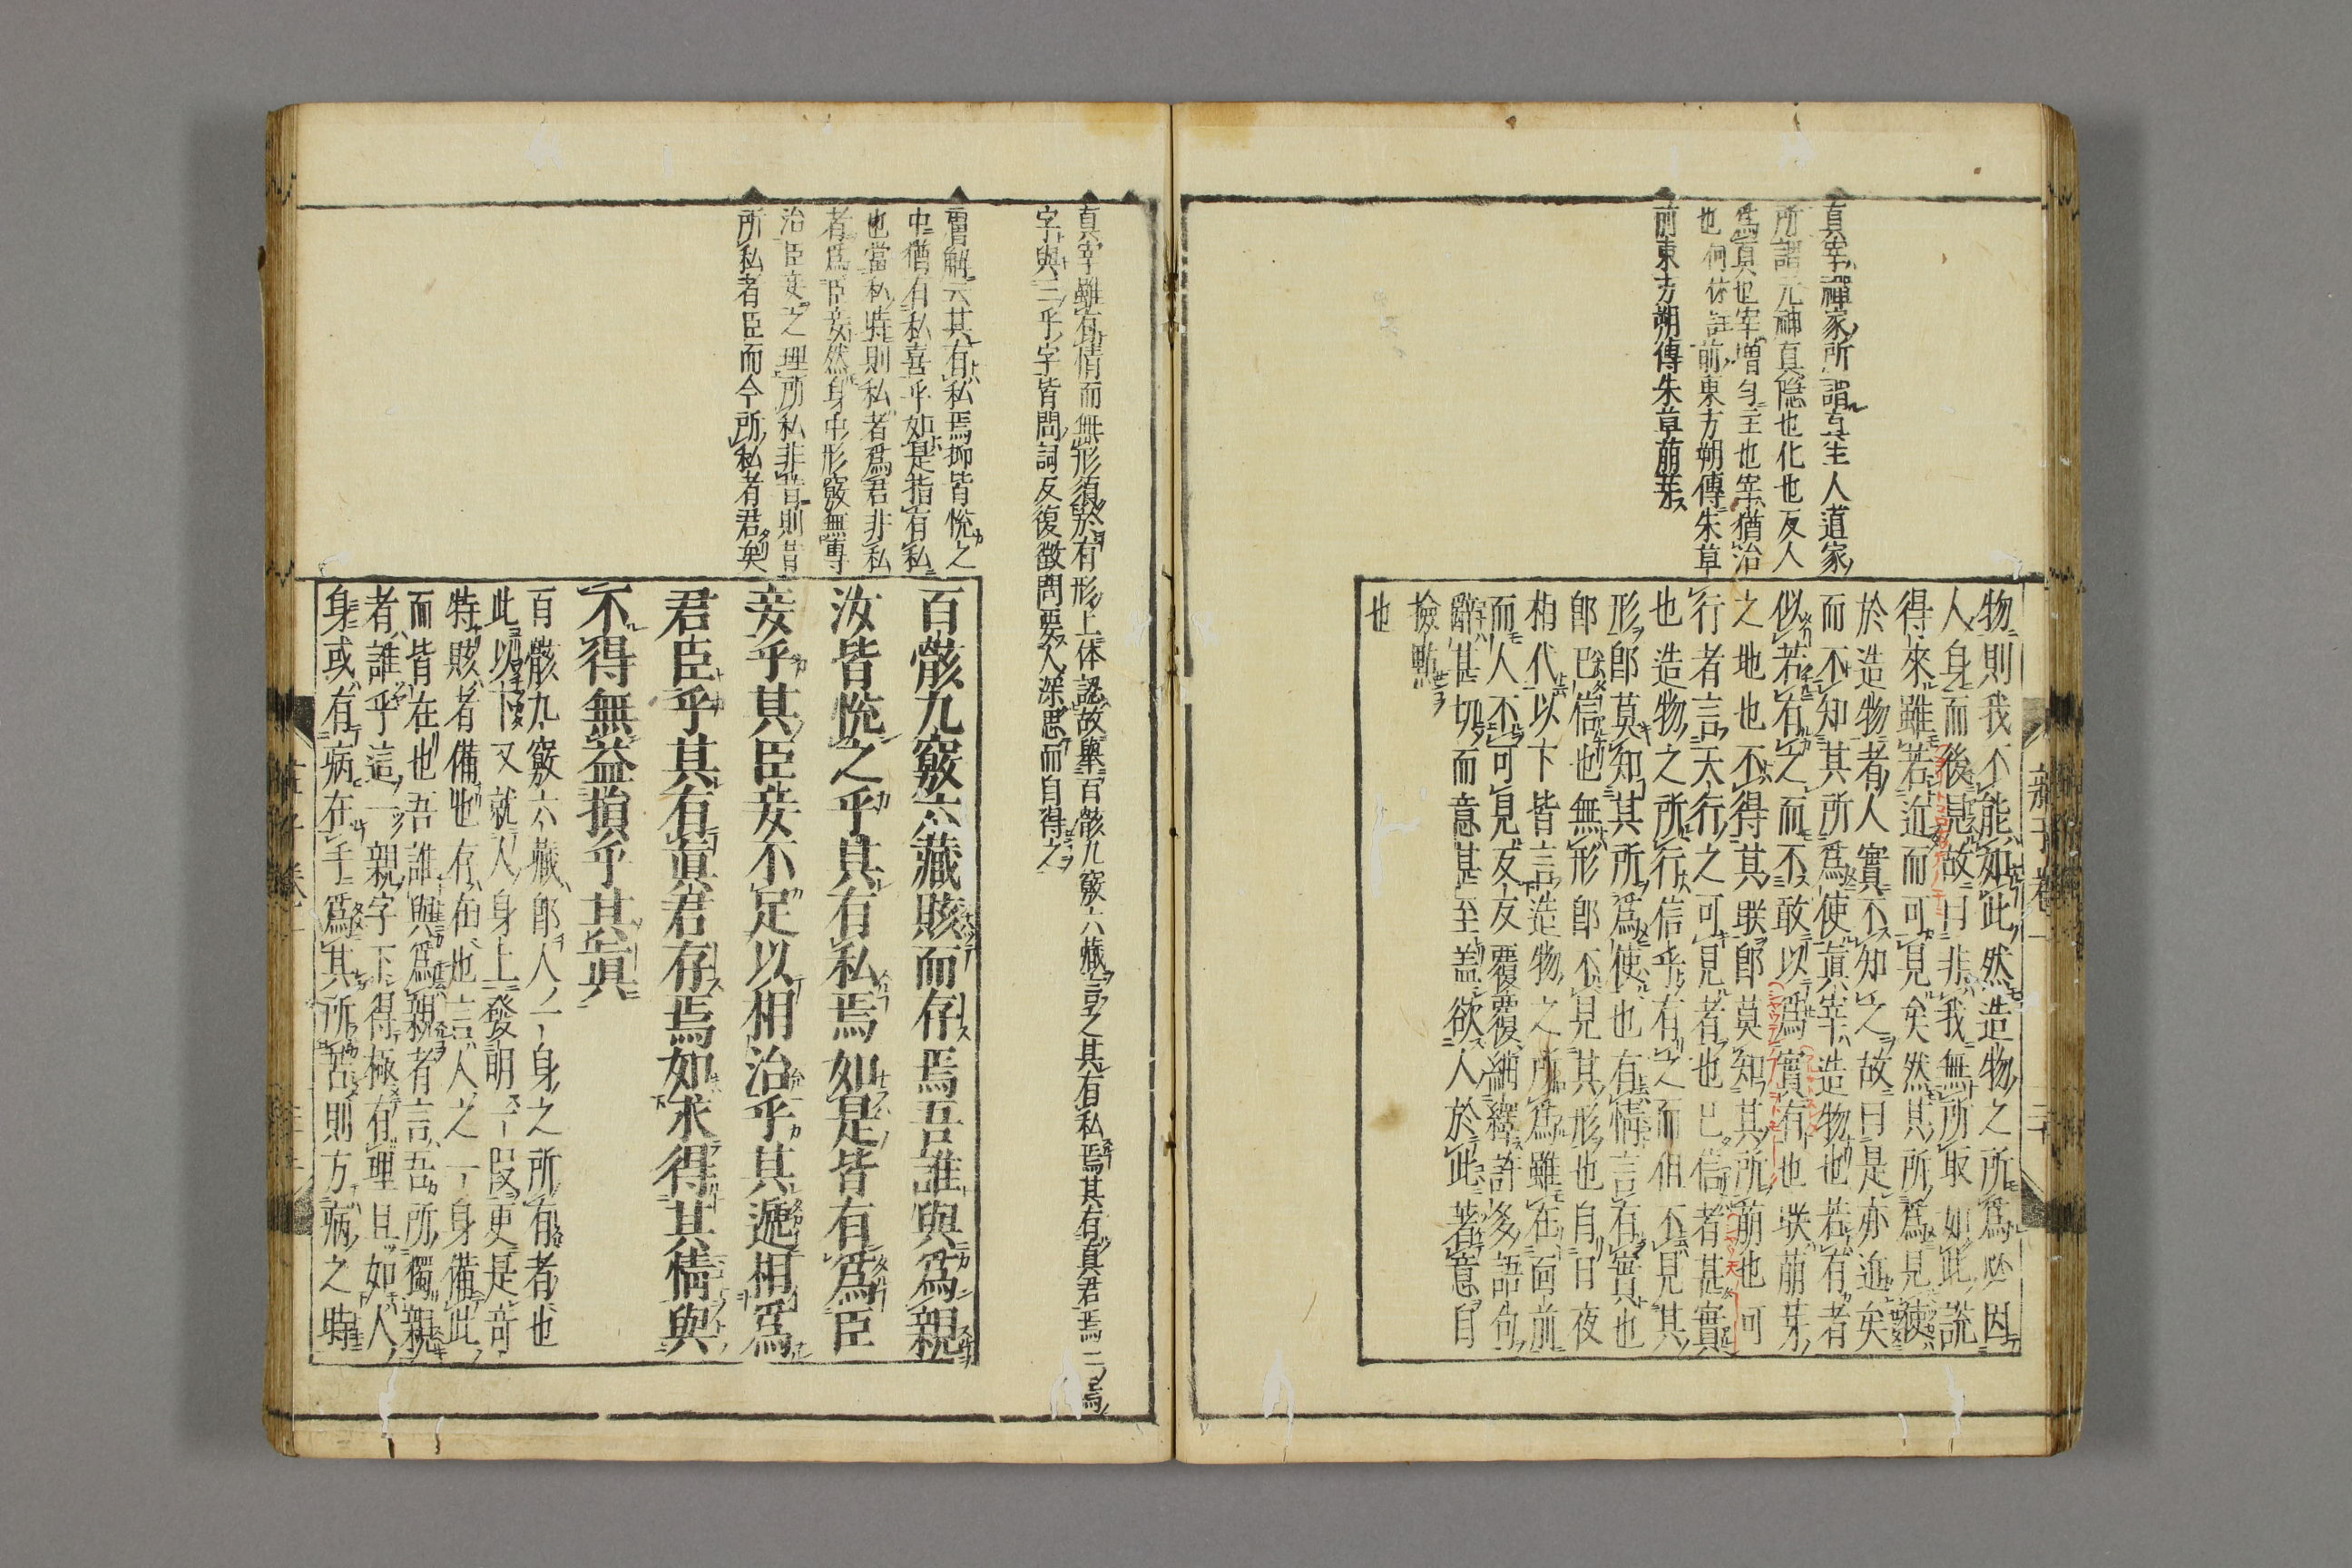 真宰禪家所謂主人道家
所謂元神真隱也化也反人
爲真也宰増勻主也宰猶治
也何休註前東方朔傳朱草
前東方朔傳朱草萠芽
物則我不能如此然造物之所爲必因
人身而後見故曰非我無所取如此說
得來雖若近而可見矣然其所爲見使
於造物者人實不知之故曰是亦近矣
而不知其所爲使真宰造物也若有者
似若有之而不敢以爲實有也眹萠芽
之地也不得其眹即莫知其所萠也可
行者言天行之可見者也已信者甚實
也造物之所行信乎有之而但不見其
形即莫知其所爲使也有情言有實也
即已信也無形即不見其形也自日夜
相代以下皆言造物之所爲雖在面前
而人不可見反反覆覆紬繹許多語句
辭甚切而意甚至蓋欲人於此著意自
撿點
也
真宰雖有情而無形須於有形上体認故舉百骸九竅六藏言之其有私焉其有真君焉二焉
字與三乎字皆問詞反復徵問要人深思而自得之
曾解云其有私焉抑皆悅之
中猶有私喜乎如是指有私
也當私時則私者爲君非私
者爲臣妾然身中形竅無專
治臣妾之理所私非昔則昔
所私者臣而今所私者君矣
百骸九竅六藏賅而存焉吾誰與爲親
汝皆悅之乎其有私焉如是皆有爲臣
妾乎其臣妾不足以相治乎其遞相爲
君臣乎其有真君存焉如求得其情與
不得無益損乎其真
百骸九竅六藏即人一身之所有者也
此以下又就人身上發明一段更是奇
特賅者備也存在也言人之一身備此
而皆在也吾誰與爲親者言吾所獨親
者誰乎這一親字下得極有理且如人
身或有病在手爲其所苦則方病之時